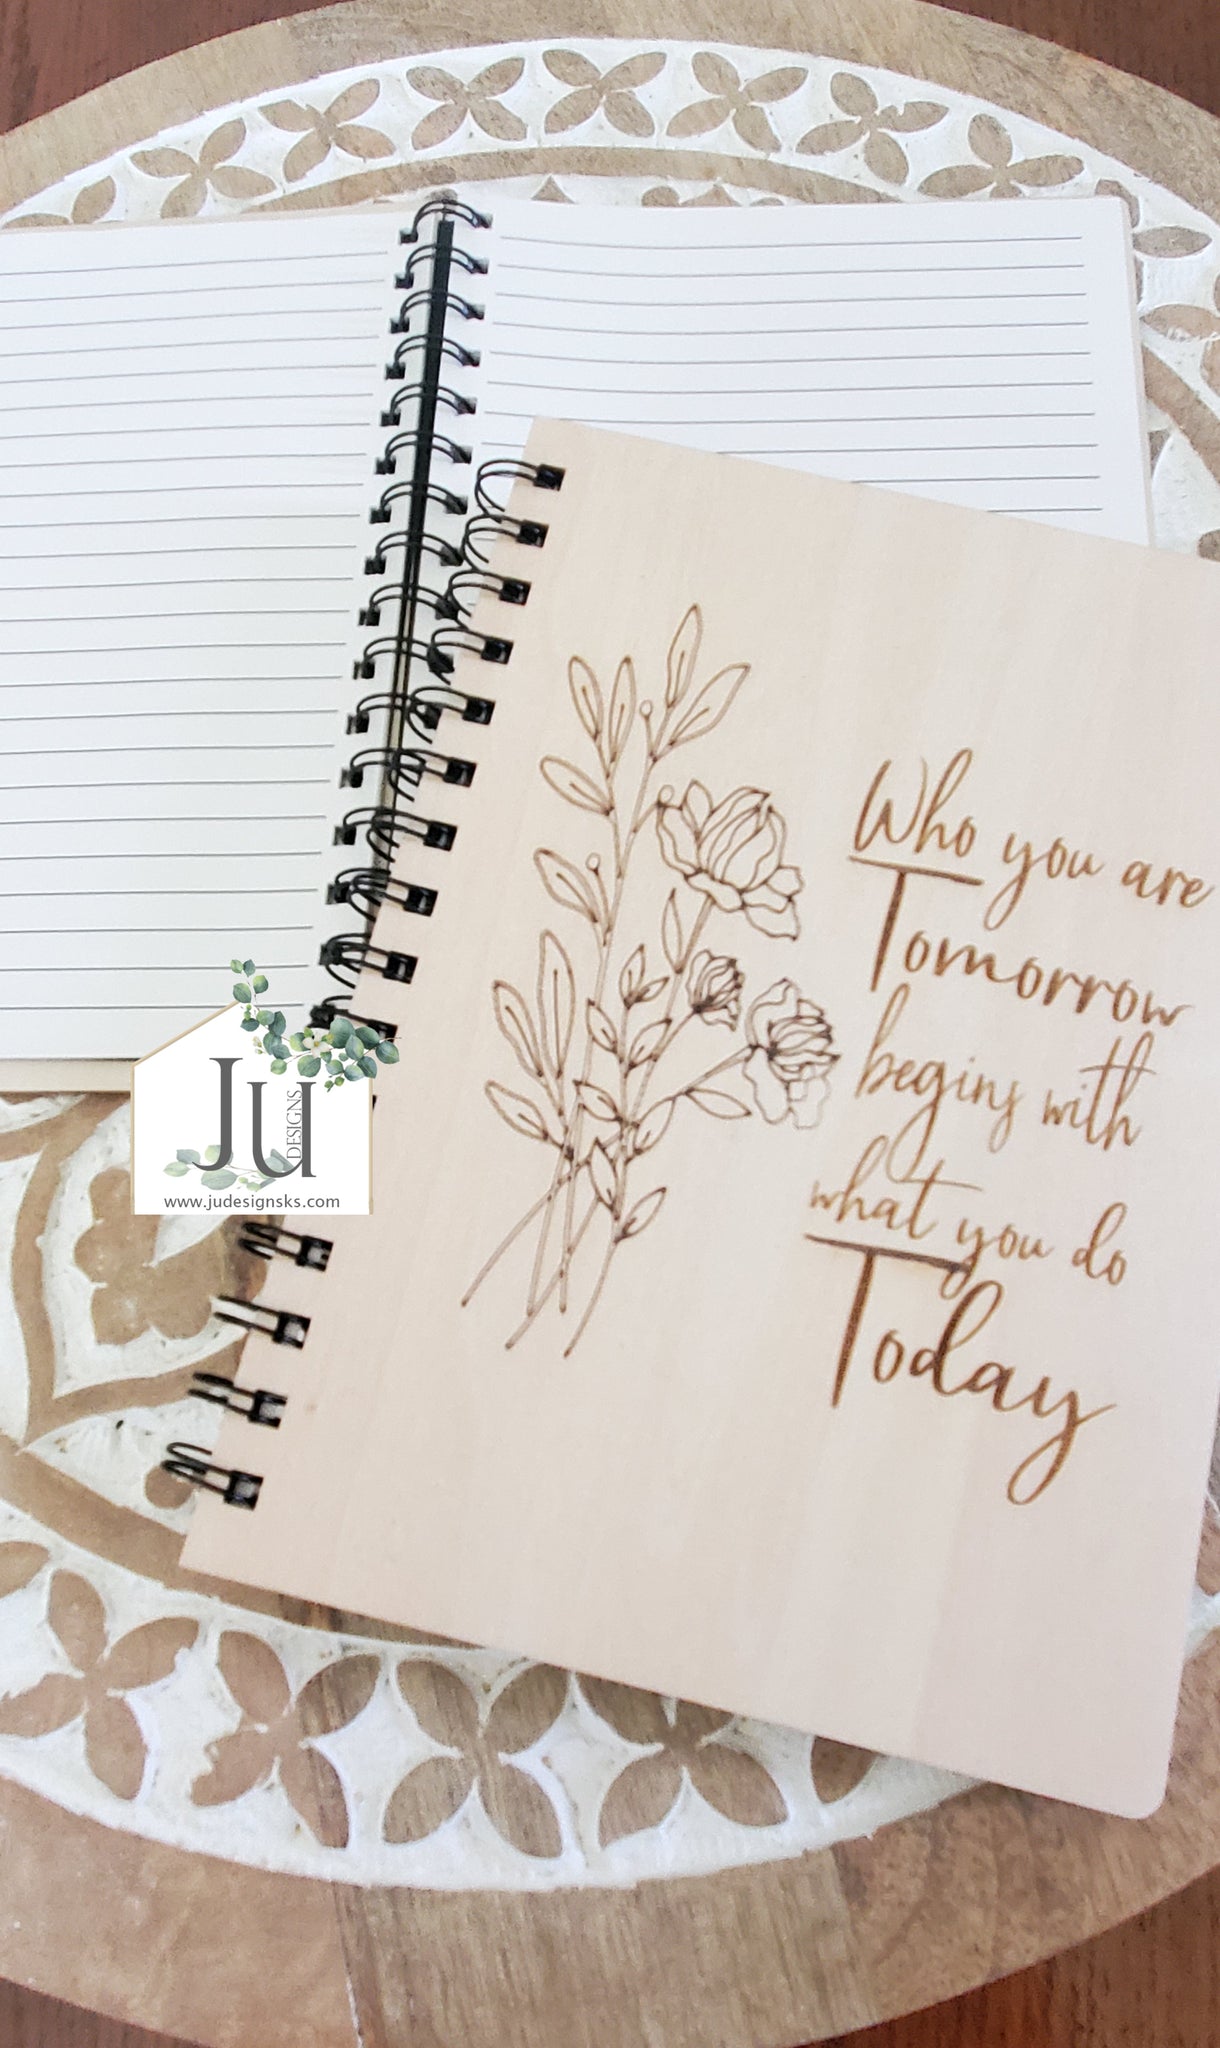 Who you are
Tomorrow
begins with
what you do
Today
JU
DESIGNS
www.judesignsks.com